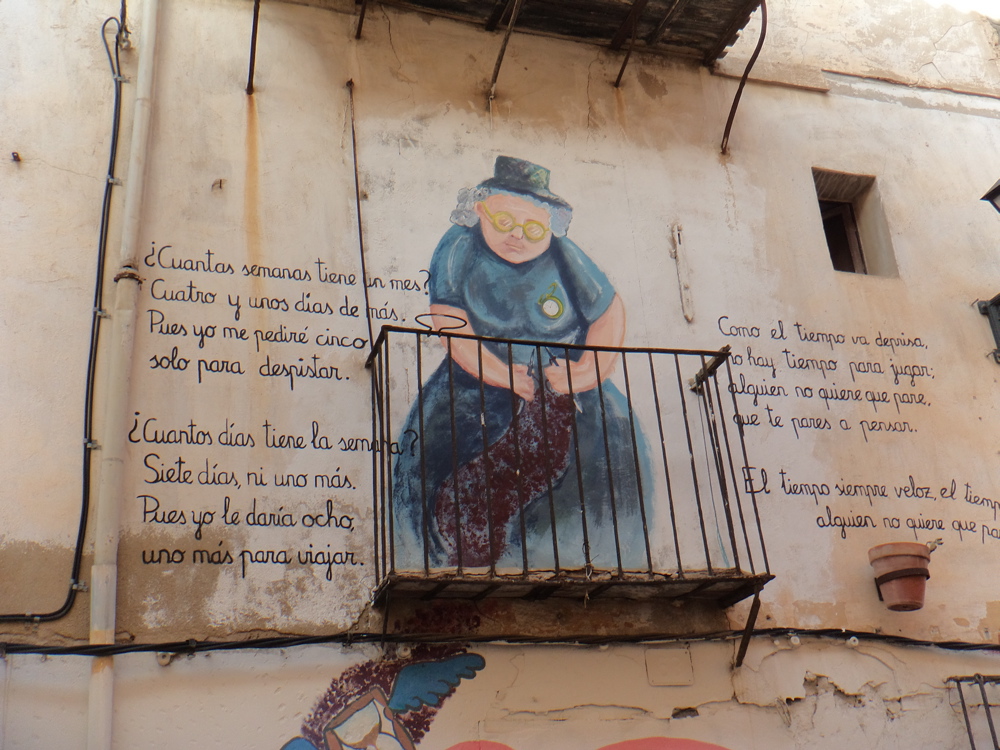 ¿Cuantas semanas tiene un mes?
Cuatro y unos días de más.
Pues yo me pediré cinco
solo para despistar.
¿Cuantos días tiene la semana?
Siete días, ni uno más.
Pues yo le daría ocho,
uno más para viajar.
Como el tiempo va deprisa,
no hay tiempo para jugar;
alguien no quiere que pare,
que te pares a pensar.
El tiempo siempre veloz, el
alguien no quiere que